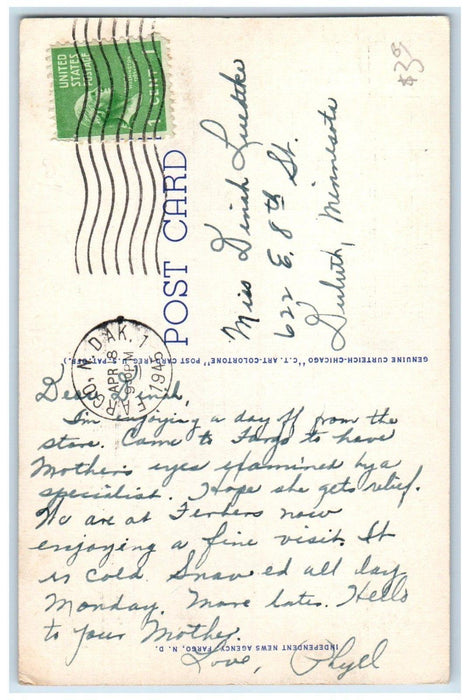 UNITED
STATES
POSTAGE
1 CENT 1
$3.00
POST CARD
Miss Dinah Luedtke
622 E. 8th St.
Duluth, Minnesota
GENUINE CURTEICH-CHICAGO "C.T. ART-COLORTONE" POST CARD (REG. U.S. PAT. OFF.)
FARGO, N. DAK. 1
APR 8
PM
194
Dear Dinah,
I'm enjoying a day off from the
store. Came to Fargo to have
Mother's eyes examined by a
specialist. Hope she gets relief.
We are at Ferbers now
enjoying a fine visit. It
is cold. Snowed all day
Monday. More later. Hello
to your Mother.
Love, Phyll
INDEPENDENT NEWS AGENCY, FARGO, N. D.